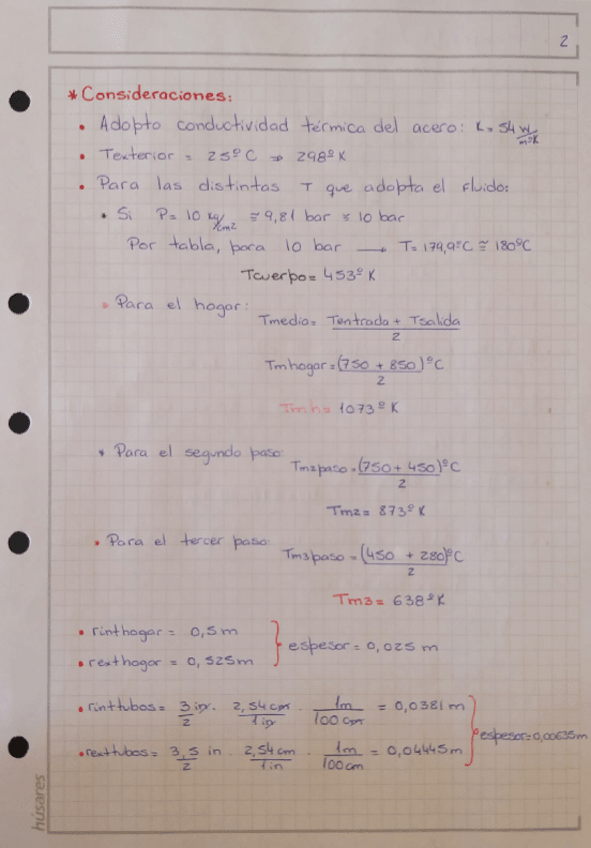 2
* Consideraciones:
• Adopto conductividad térmica del acero: K = 54 W/m°K
• Texterior = 25° C ⇒ 298° K
• Para las distintas T que adopta el fluido:
• Si P= 10 kg/cm2 ≅ 9,81 bar ≅ 10 bar
Por tabla, para 10 bar → T= 179,9°C ≅ 180°C
Tcuerpo = 453° K
• Para el hogar:
Tmedia = (Tentrada + Tsalida)/2
Tmhogar = (750 + 850)°C/2
Tmh = 1073° K
• Para el segundo paso:
Tm2paso = (750 + 450)°C/2
Tm2 = 873° K
• Para el tercer paso:
Tm3paso = (450 + 280)°C/2
Tm3 = 638° K
• rinthogar = 0,5 m
• rexthogar = 0,525m } espesor = 0,025 m
• rinttubos = 3/2 in. 2,54 cm/1 in . 1m/100 cm = 0,0381 m
• rexttubos = 3,5/2 in . 2,54 cm/1 in . 1m/100 cm = 0,04445m } espesor = 0,00635m
húsares